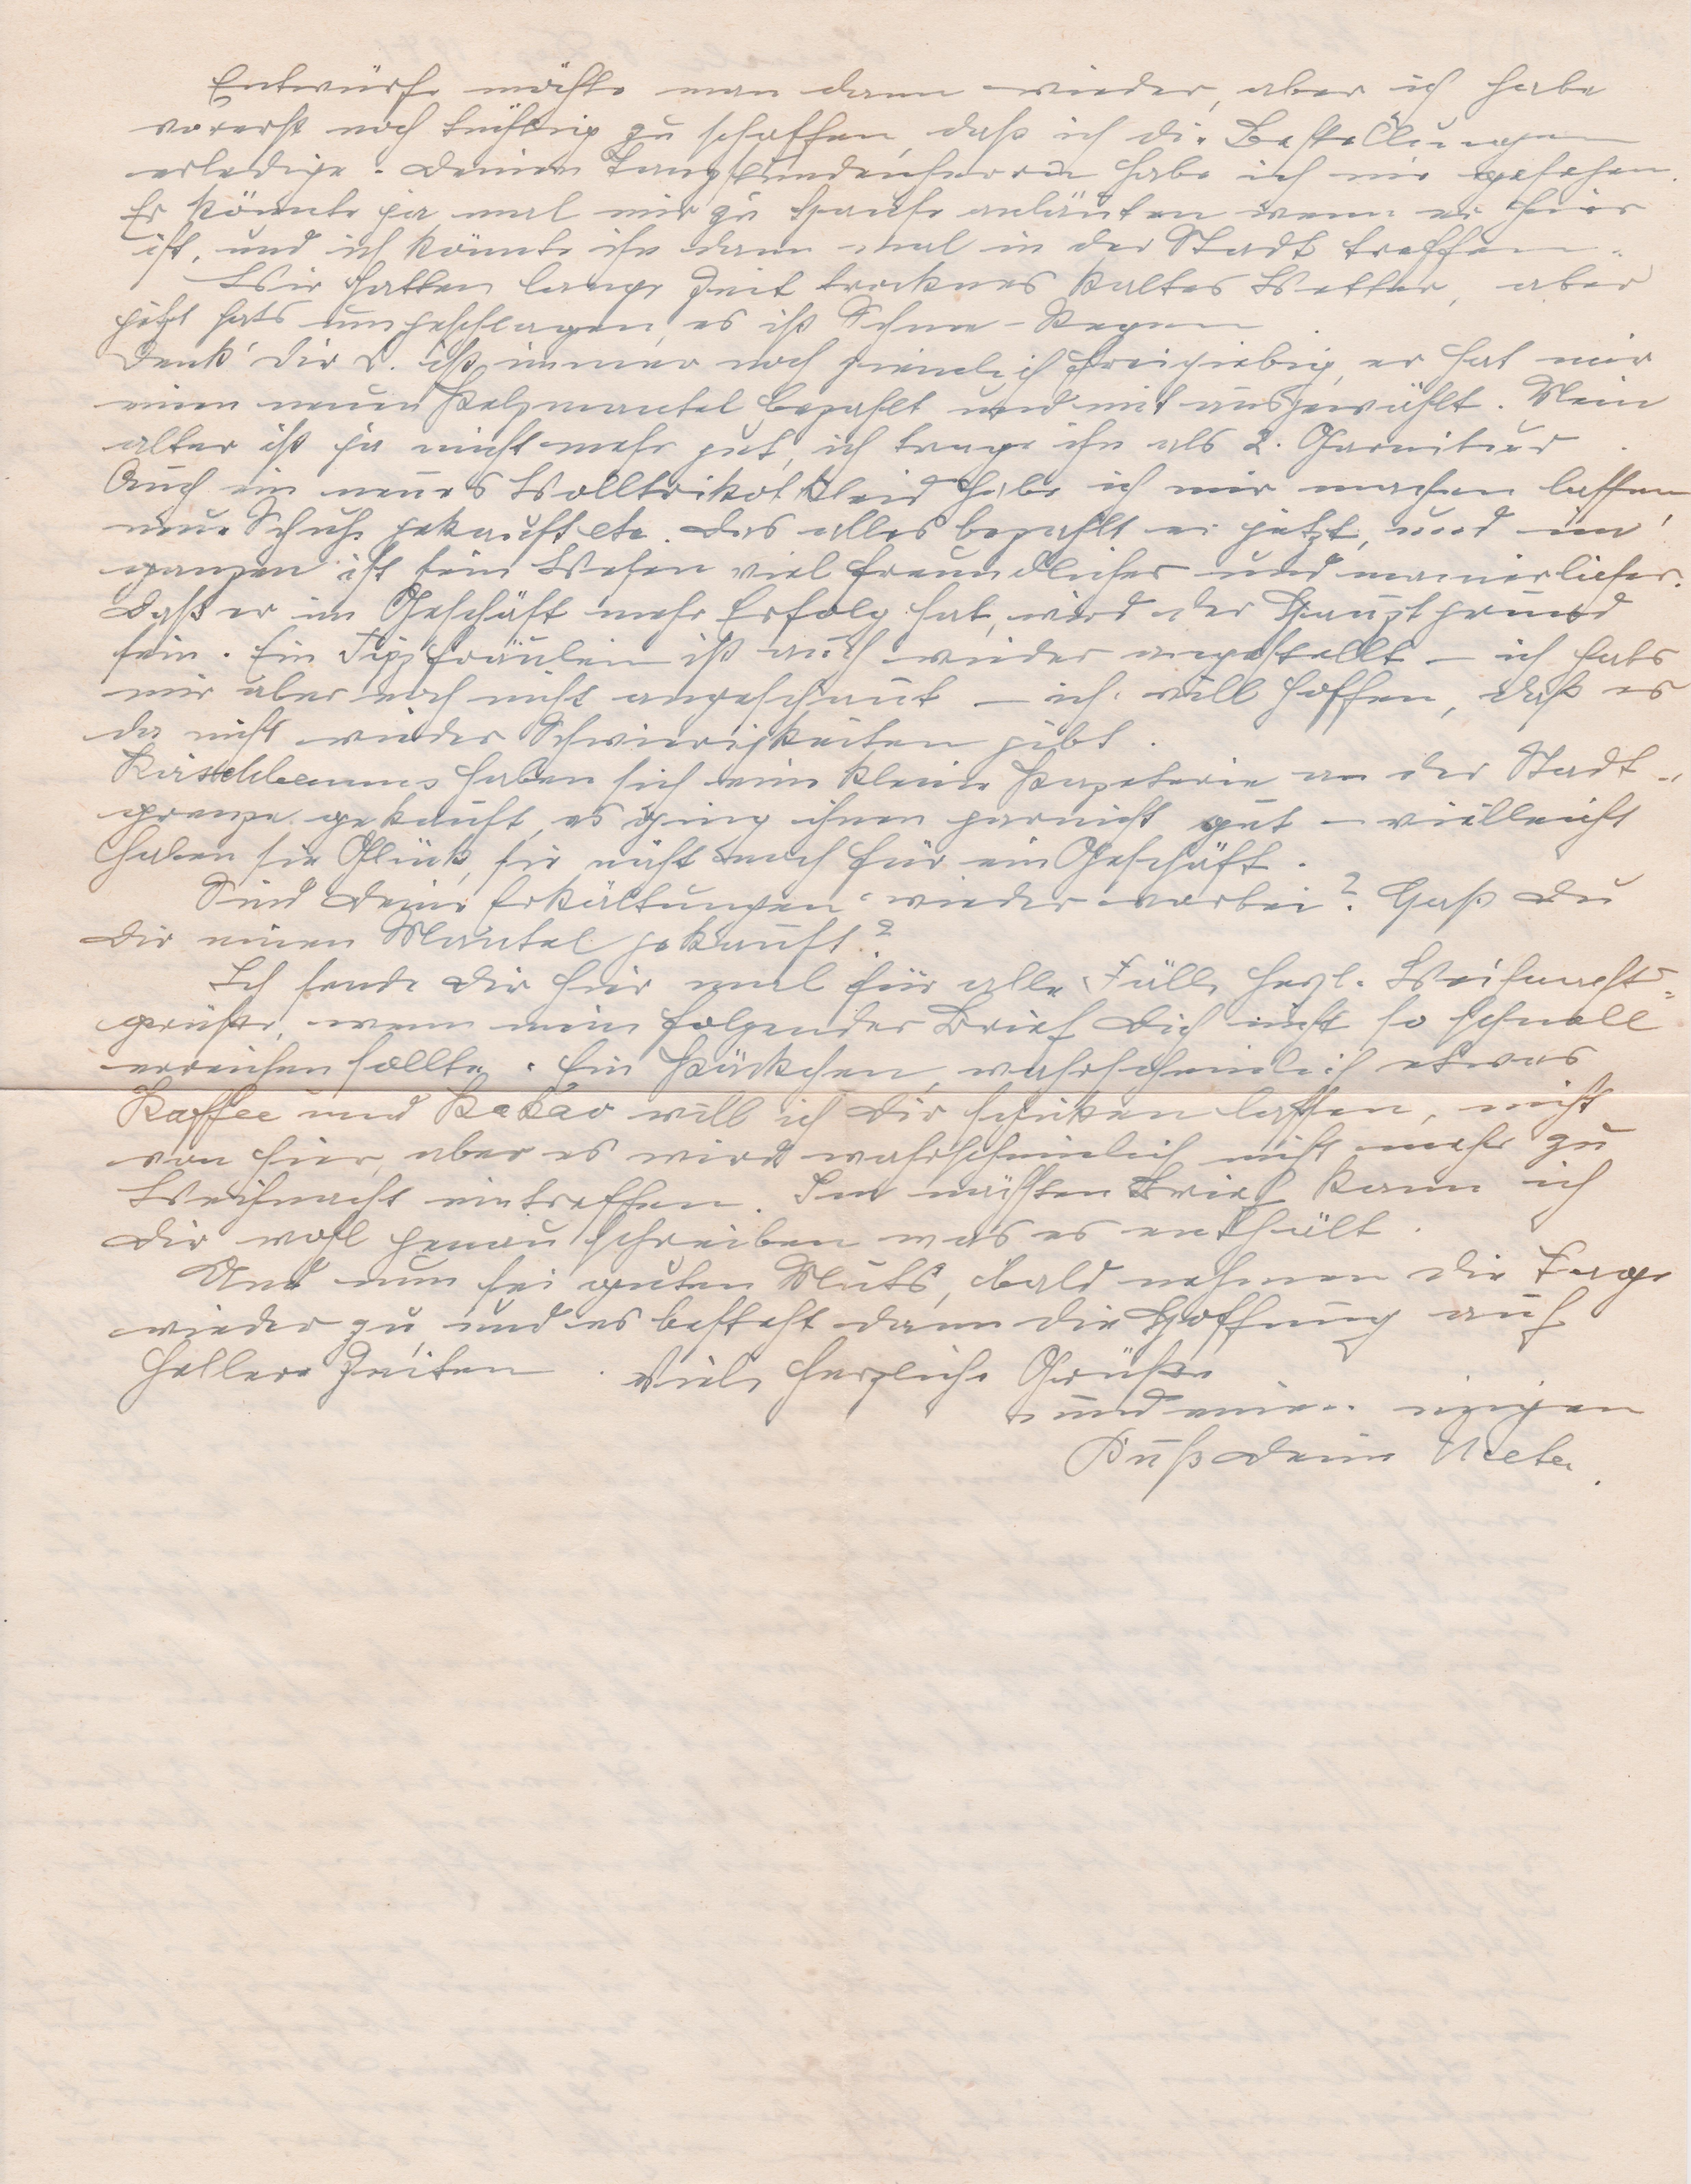 Entwürfe möchte man dann wieder, aber ich habe
vorerst noch tüchtig zu schaffen, daß ich die Bestellungen
erledige. Deinen Tanzstundenherrn habe ich nie gesehen.
Er könnte ja mal mir zu Hause anläuten wenn er hier
ist, und ich könnte ihn dann mal in der Stadt treffen.
Wir hatten lange Zeit trocknes kaltes Wetter, aber
jetzt hats umgeschlagen, es ist Schnee-Regen.
Denk' Dir L. ist immer noch ziemlich freigiebig, er hat mir
einen neuen Pelzmantel bezahlt und mit ausgewählt. Mein
alter ist ja nicht mehr gut, ich trage ihn als 2. Garnitur.
Auch ein neues Wolltrikotkleid habe ich mir machen lassen,
neue Schuhe gekauft etc. Das alles bezahlt er jetzt, und im
ganzen ist sein Wesen viel freundlicher und manierlicher.
Daß er im Geschäft mehr Erfolg hat, wird der Hauptgrund
sein. Ein Tippfräulein ist auch wieder angestellt – ich habs
mir aber noch nicht angeschaut – ich will hoffen, daß es
da nicht wieder Schwierigkeiten gibt.
Kirschbaums haben sich eine kleine Papeterie an der Stadt-
grenze gekauft, es ging ihnen garnicht gut – vielleicht
haben sie Glück, sie näht noch für ein Geschäft.
Sind Deine Erkältungen wieder vorbei? Hast Du
Dir einen Mantel gekauft?
Ich sende Dir hier mal für alle Fälle herzl. Weihnachts-
grüße, wenn mein folgender Brief Dich nicht so schnell
erreichen sollte. Ein Päckchen, wahrscheinlich etwas
Kaffee und Kakao will ich Dir schicken lassen, nicht
von hier, aber es wird wahrscheinlich nicht mehr zu
Weihnacht eintreffen. Im nächsten Brief kann ich
Dir wohl genau schreiben was es enthält.
Und nun sei guten Muts, bald nehmen die Tage
wieder zu, und es besteht dann die Hoffnung auf
hellere Zeiten. Viele herzliche Grüße
und einen innigen
Kuß Deine